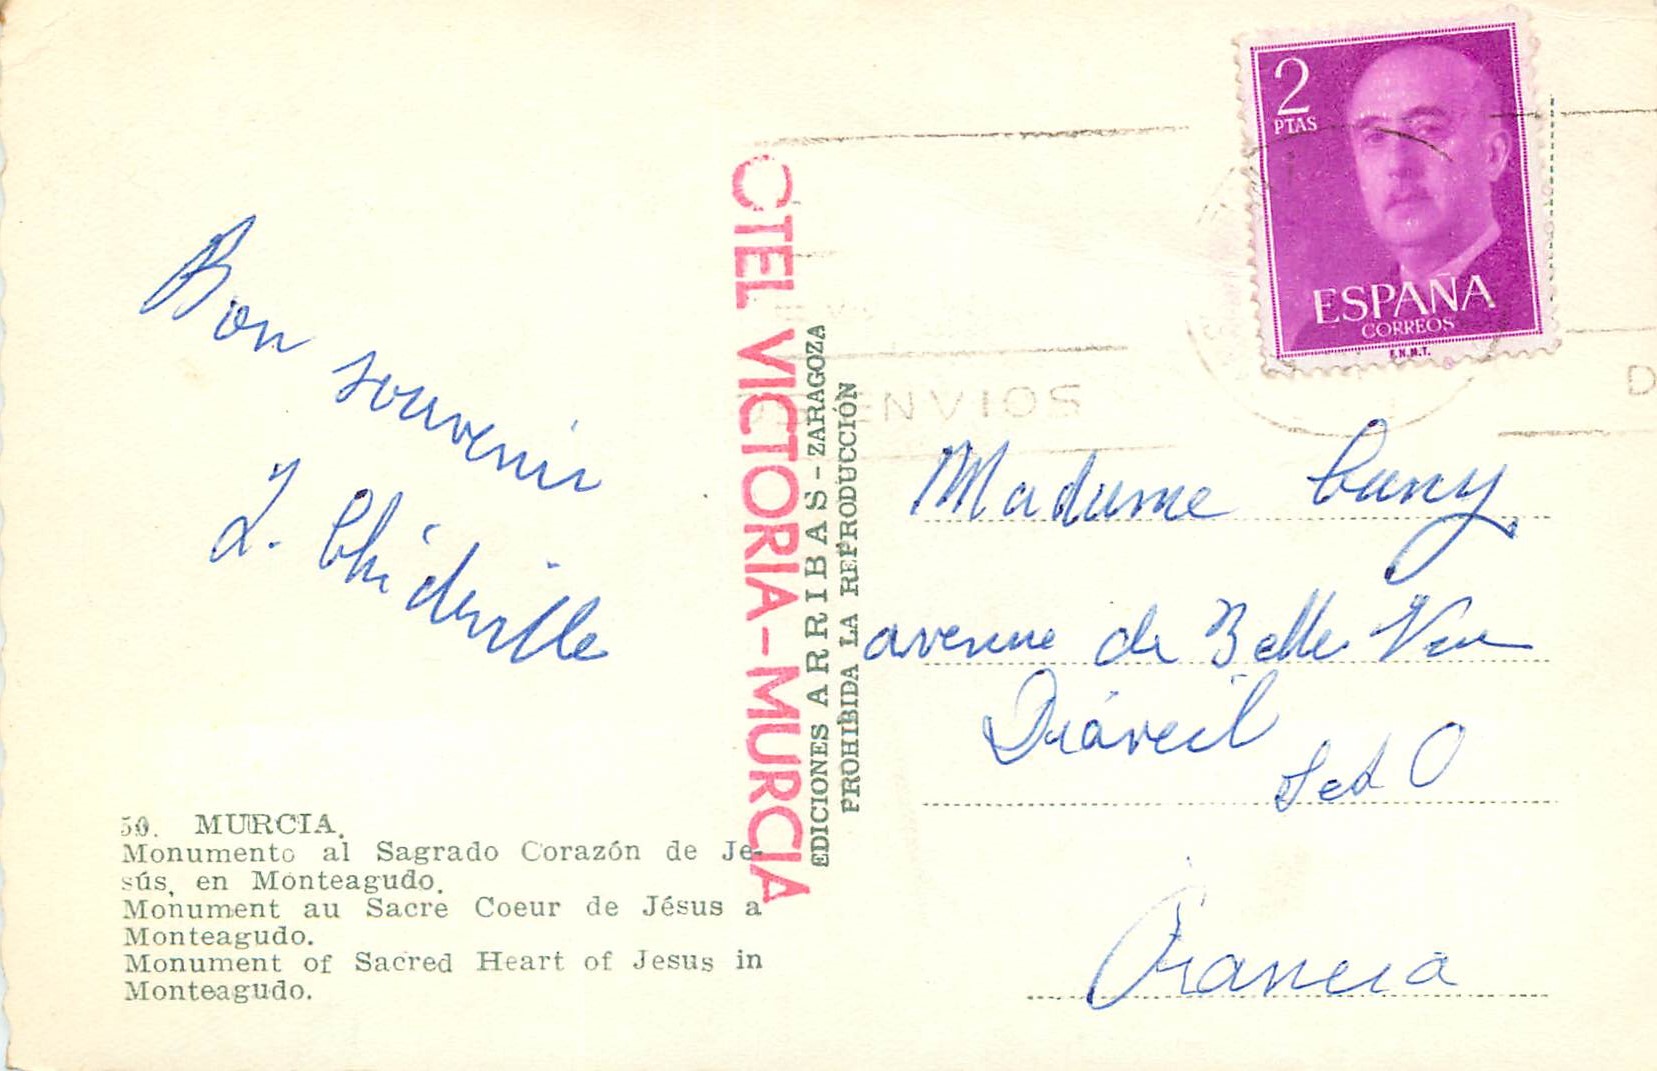 Bon
souvenir
50. MURCIA.
Monumento al Sagrado Corazón de Je-
sús, en Monteagudo.
Monument au Sacre Coeur de Jésus a
Monteagudo.
Monument of Sacred Heart of Jesus in
Monteagudo.
OTEL VICTORIA-MURCIA
EDICIONES ARRIBAS-ZARAGOZA
PROHIBIDA LA REPRODUCCIÓN
2
PTAS
ESPAÑA
CORREOS
F.N.M.T.
ENVIOS
D
Madame Cuny
avenue de Belle Vue
Draveil
S et O
Francia